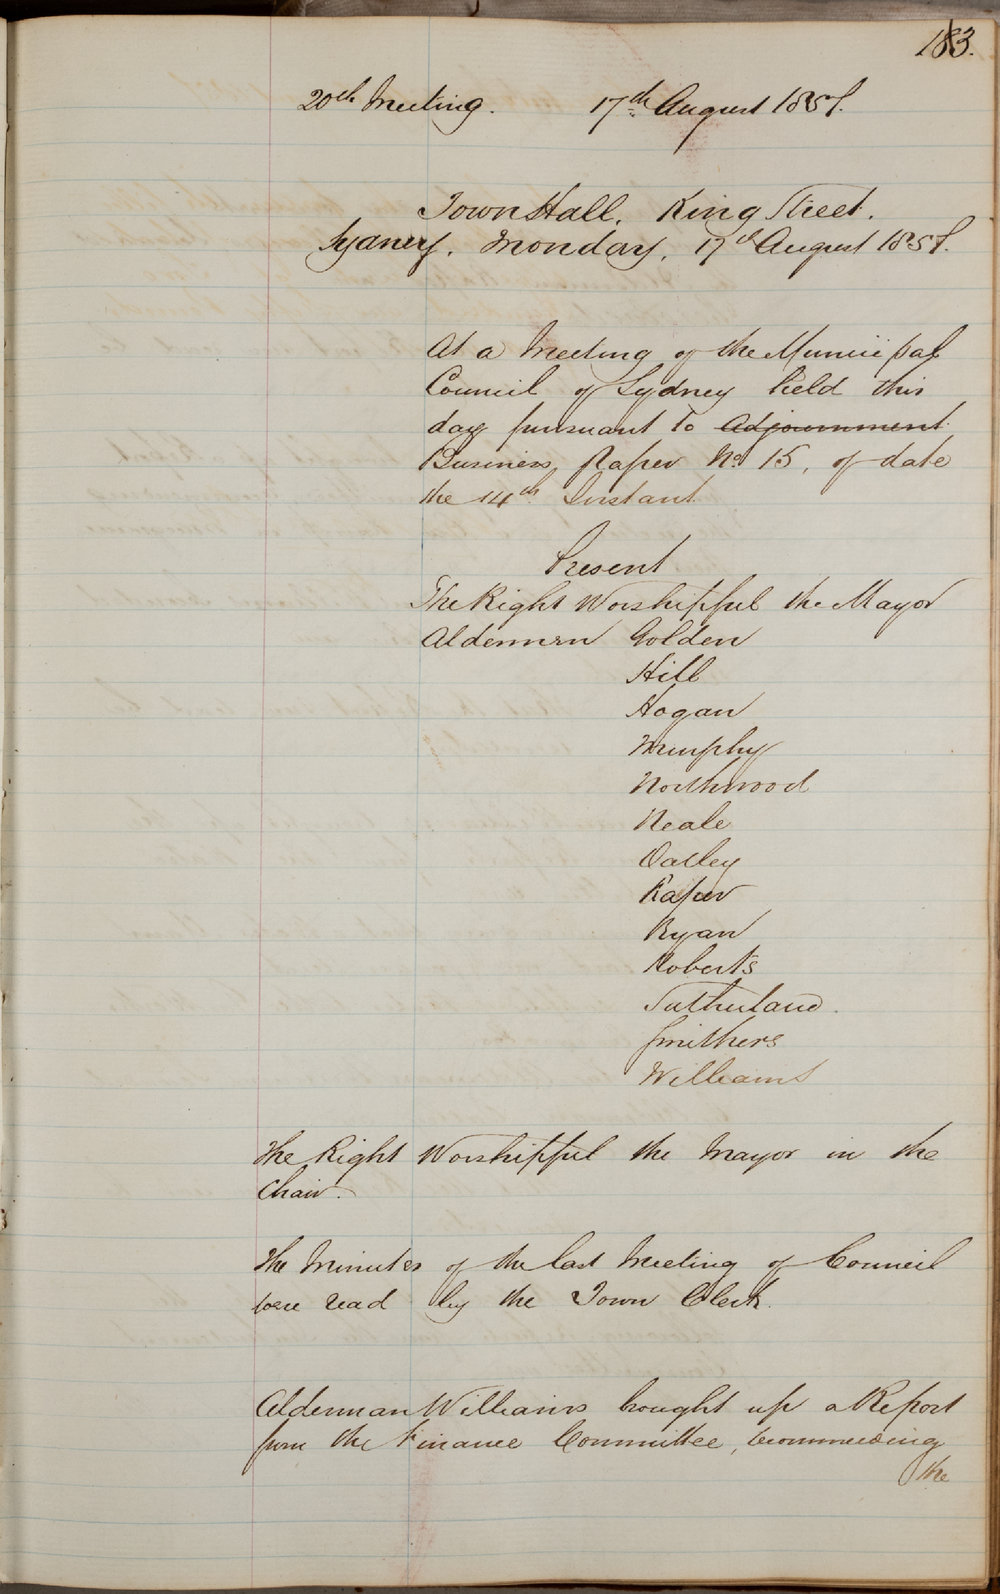 183.
20th Meeting. 17th August 1857.
Town Hall, King Street.
Sydney, Monday, 17th August 1857.
At a Meeting of the Municipal
Council of Sydney held this
day pursuant to Adjournment
Business Paper No. 15, of date
the 14th Instant
Present
The Right Worshipful the Mayor
Aldermen Golden
Hill
Hogan
Murphy
Northwood
Neale
Oatley
Raper
Ryan
Roberts
Sutherland.
Smithers
Williams
The Right Worshipful the Mayor in the
Chair.
The Minutes of the last Meeting of Council
were read by the Town Clerk.
Alderman Williams brought up a Report
from the Finance Committee, recommending
the